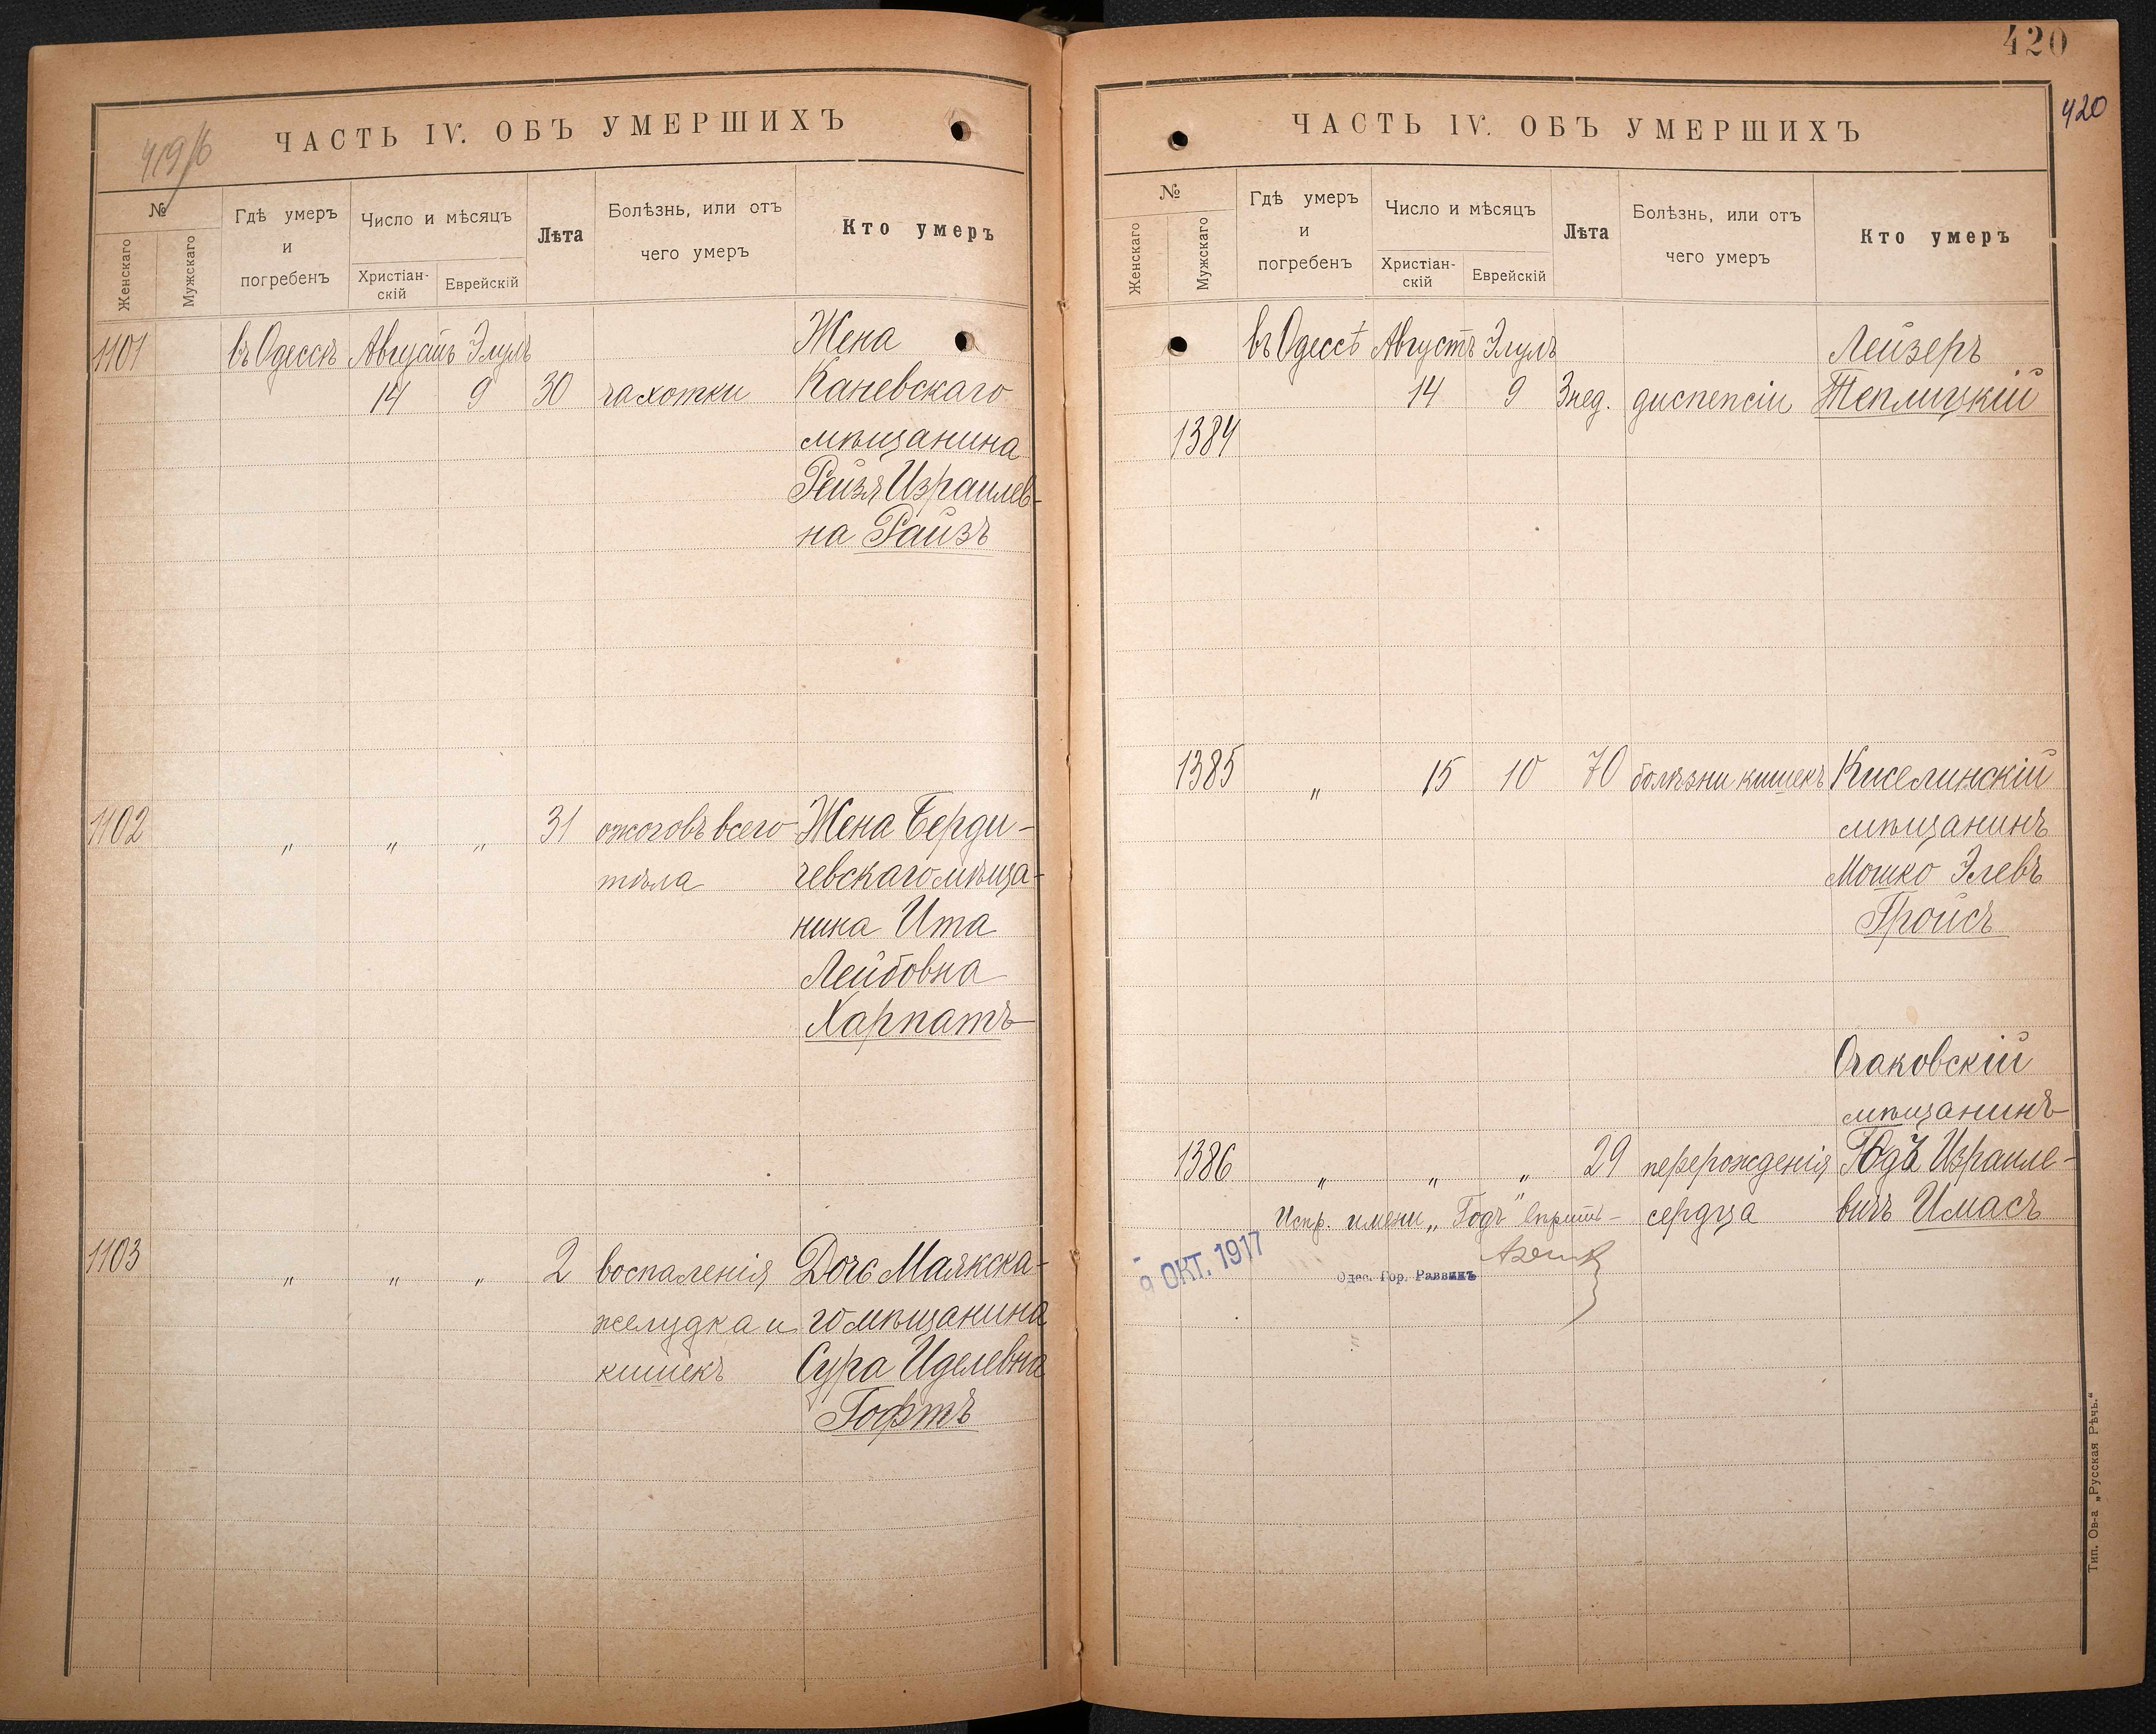 419/б
ЧАСТЬ IV. ОБЪ УМЕРШИХЪ
№
Женскаго
Мужскаго
Гдѣ умеръ
и
погребенъ
Число и мѣсяцъ
Христіан-
скій
Еврейскій
Лѣта
Болѣзнь, или отъ
чего умеръ
Кто умеръ
1101 въ Одессѣ Августъ Элулъ Жена
14 9 30 чахотки Каневскаго
мѣщанина
Рейзя Израилев-
на Райзъ
1102 " " " 31 ожоговъ всего Жена Берди-
тѣла чевскаго мѣща-
нина Ита
Лейбовна
Харпатъ
1103 " " " 2 воспаленія Дочь Маякска-
желудка и го мѣщанина
кишекъ Сура Иделевна
Гофтъ
420
420
ЧАСТЬ IV. ОБЪ УМЕРШИХЪ
№
Женскаго
Мужскаго
Гдѣ умеръ
и
погребенъ
Число и мѣсяцъ
Христіан-
скій
Еврейскій
Лѣта
Болѣзнь, или отъ
чего умеръ
Кто умеръ
въ Одессѣ Августъ Элулъ Лейзеръ
14 9 3 нед. диспепсіи Теплицкій
1384
1385 " 15 10 70 болѣзни кишекъ Киселинскій
мѣщанинъ
Мошко Элевъ
Гройсъ
Очаковскій
мѣщанинъ
1386 " " " 29 перерожденія Годъ Израиле-
Испр. имени „Годъ" сердца вичъ Имасъ
9 ОКТ. 1917
Одес. Гор. Раввинъ
Тип. Ов-а „Русская Рѣчь."